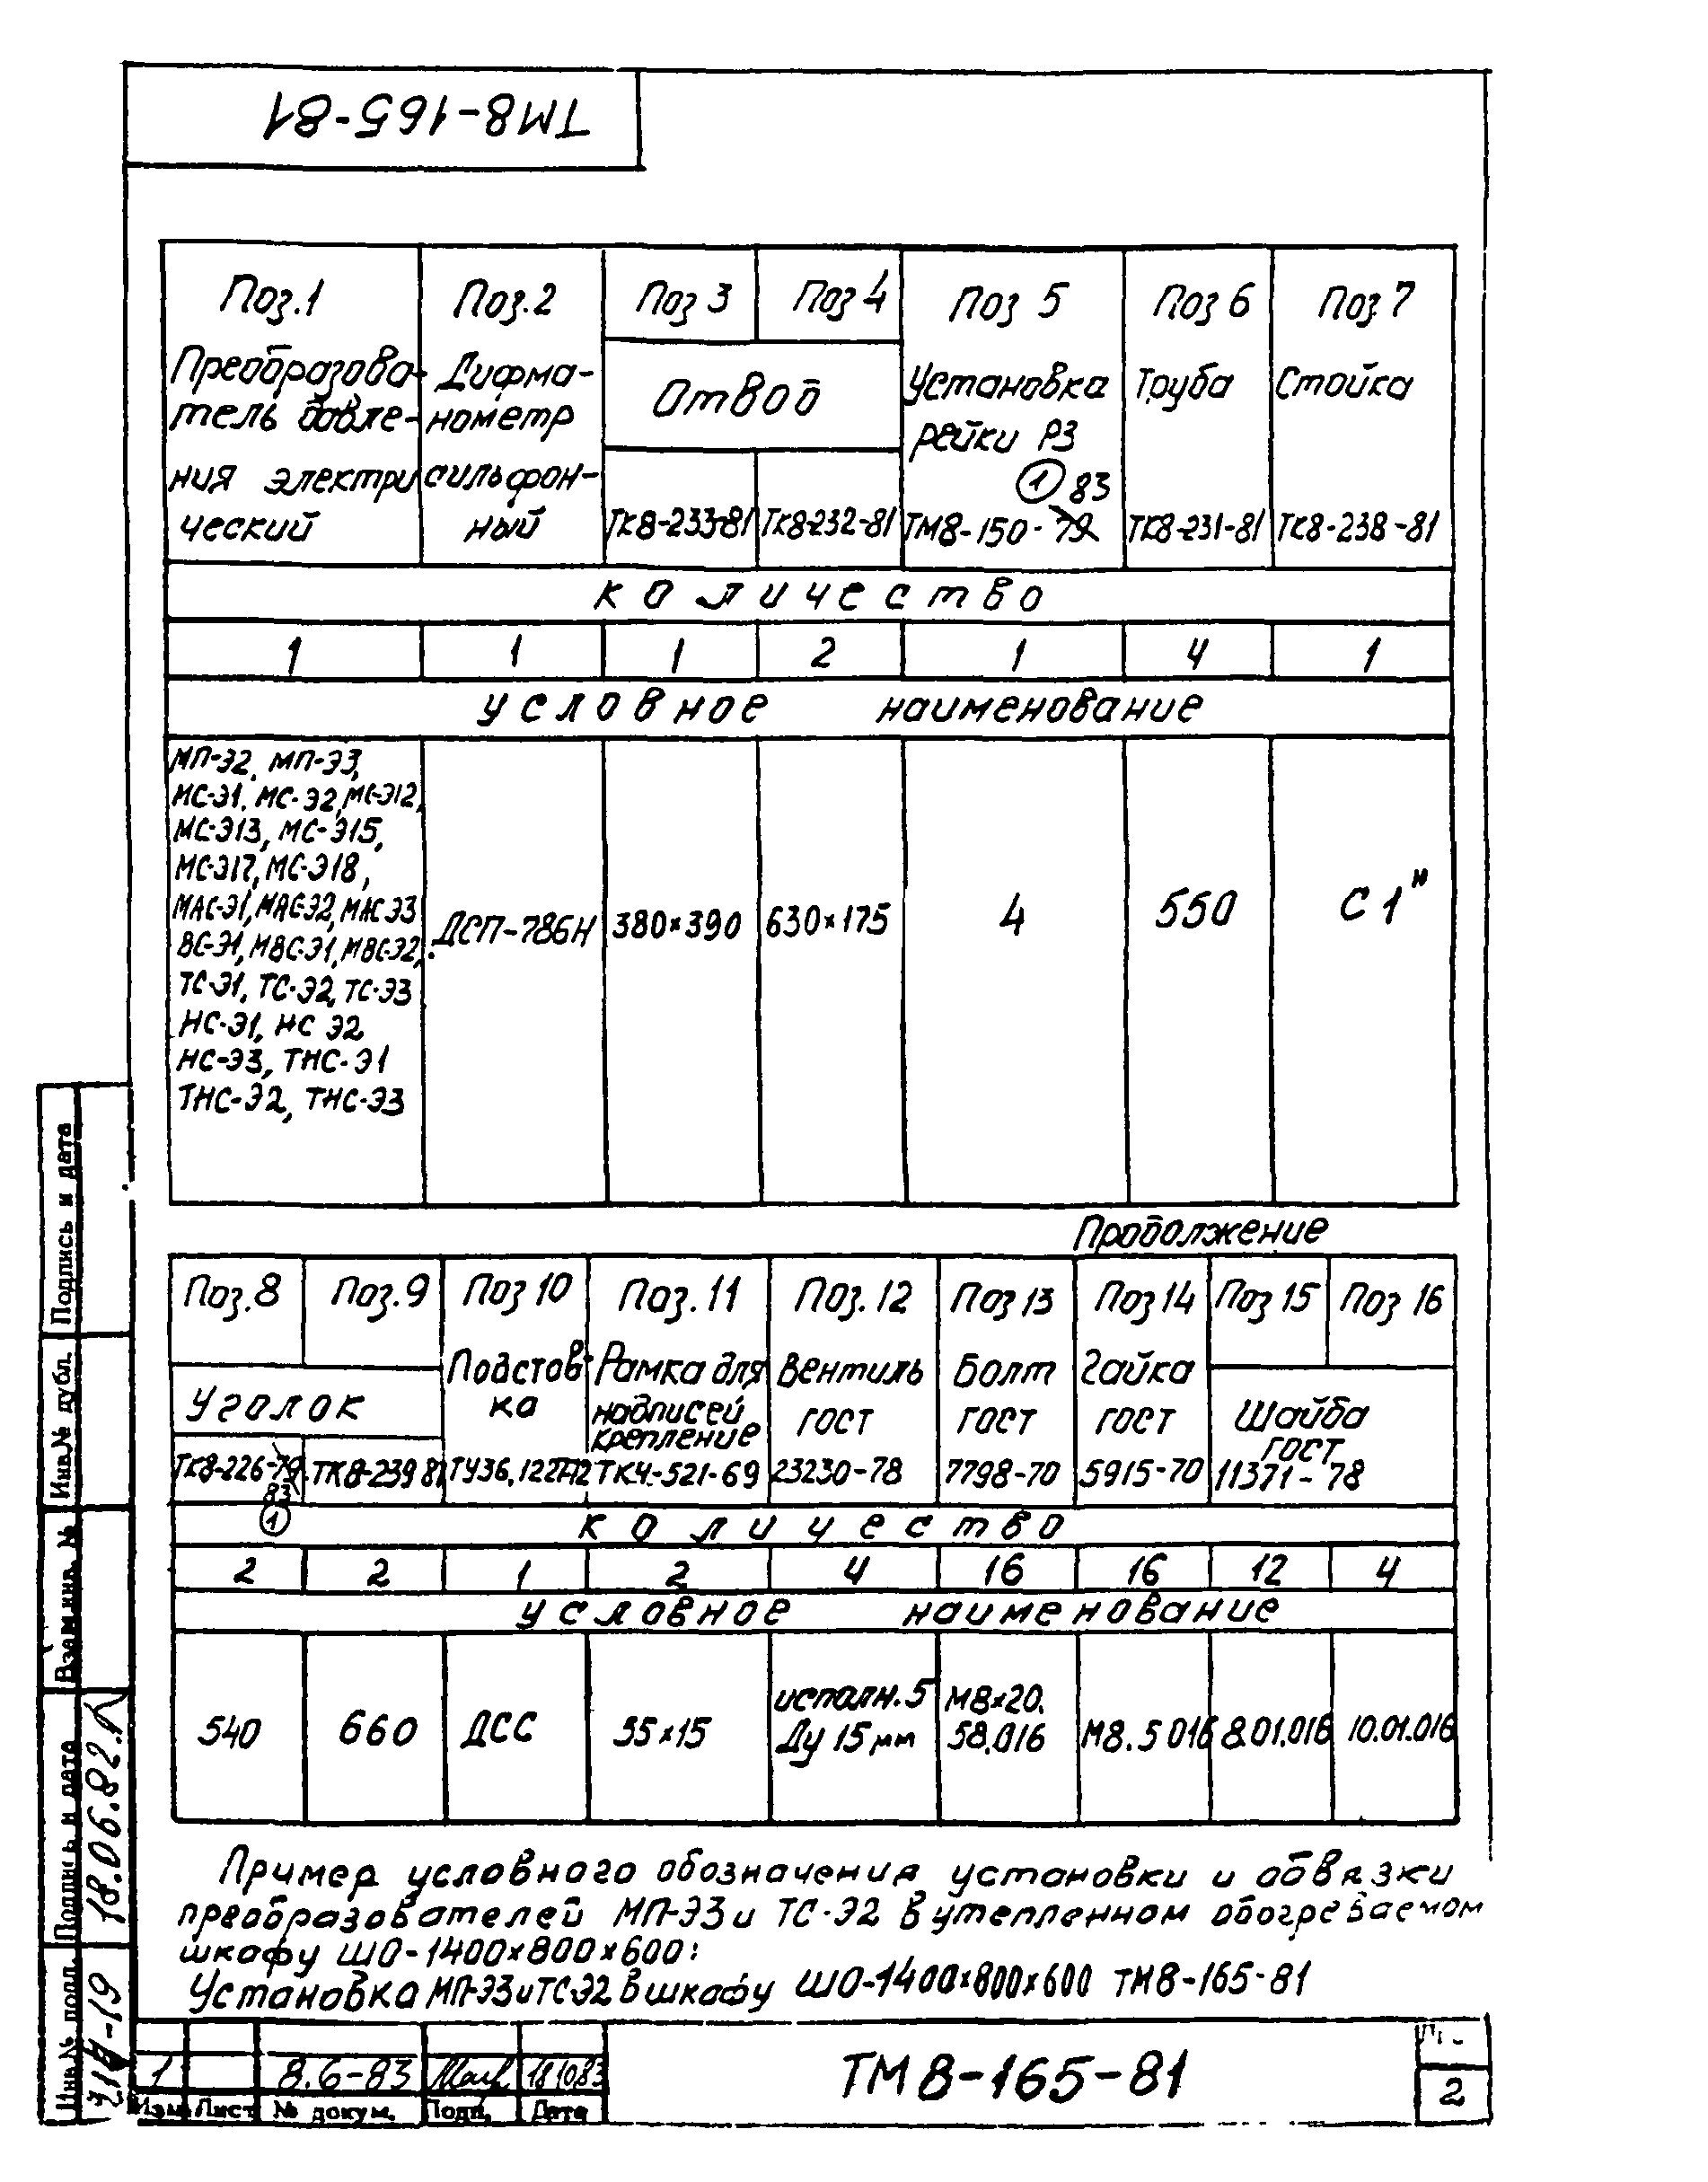 ТМ8-165-81
Поз.1 Поз.2 Поз 3 Поз 4 Поз 5 Поз 6 Поз.7
Преобразова- Дифма- Отвод Установка Труба Стойка
тель давле- нометр рейки РЗ
ния электри сильфон- ① 83
ческий ный ТК8-233-81 ТК8-232-81 ТМ8-150-79 ТК8-231-81 ТК8-238-81
количество
1 1 1 2 1 4 1
условное наименование
МП-Э2, МП-Э3,
МС-Э1. МС-Э2, МС-Э12,
МС-Э13, МС-Э15,
МС-Э17, МС-Э18,
МАС-Э1, МАС-Э2, МАС Э3
ВС-Э1, МВС-Э1, МВС-Э2,
ТС-Э1, ТС-Э2, ТС-Э3
НС-Э1, НС Э2
НС-Э3, ТНС-Э1
ТНС-Э2, ТНС-Э3
ДСП-786Н 380×390 630×175 4 550 С1"
Продолжение
Поз.8 Поз.9 Поз 10 Поз.11 Поз.12 Поз 13 Поз 14 Поз 15 Поз 16
Уголок Подстав- Рамка для Вентиль Болт Гайка Шайба
ка надписей ГОСТ ГОСТ ГОСТ ГОСТ
крепление
ТК8-226-79 ТК8-239 81 ТУ36.1227-72 ТК4-521-69 23230-78 7798-70 5915-70 11371-78
83
①
количество
2 2 1 2 4 16 16 12 4
условное наименование
540 660 ДСС 55×15 исполн.5 М8×20. М8.5 016 8.01.016 10.01.016
Ду 15 мм 58.016
Пример условного обозначения установки и обвязки
преобразователей МП-Э3 и ТС-Э2 в утепленном обогреваемом
шкафу ШО-1400×800×600:
Установка МП-Э3 и ТС-Э2 в шкафу ШО-1400×800×600 ТМ8-165-81
1 8.6-83 18.10.83
Изм. Лист № докум. Подп. Дата
ТМ8-165-81
2
Подпись и дата
Инв.№ дубл.
Взам.инв. №
Подпись и дата 18.06.82.
Инв.№ подл.